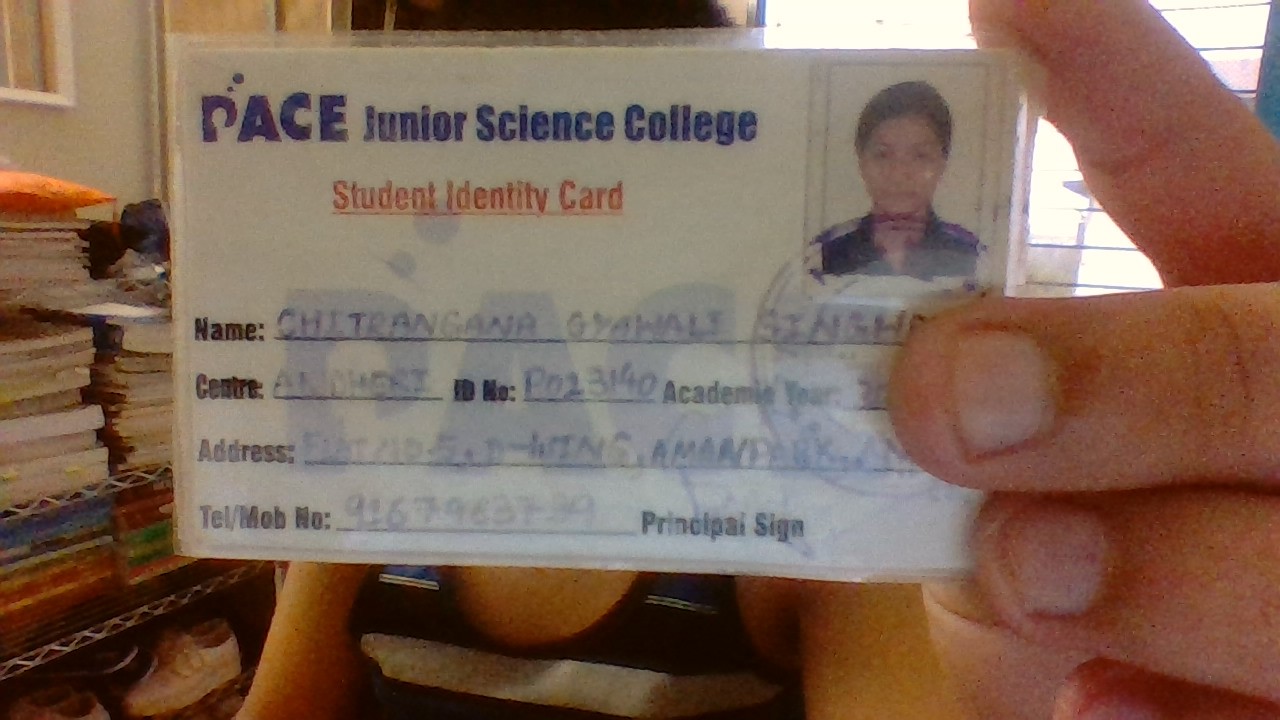 PACE Junior Science College
Student Identity Card
Name: CHITRANGANA GYAWALI
Centre: ANDHERI ID No: P023140 Academic Year:
Address: D-WING, AMAN PARK,
Tel/Mob No: Principal Sign